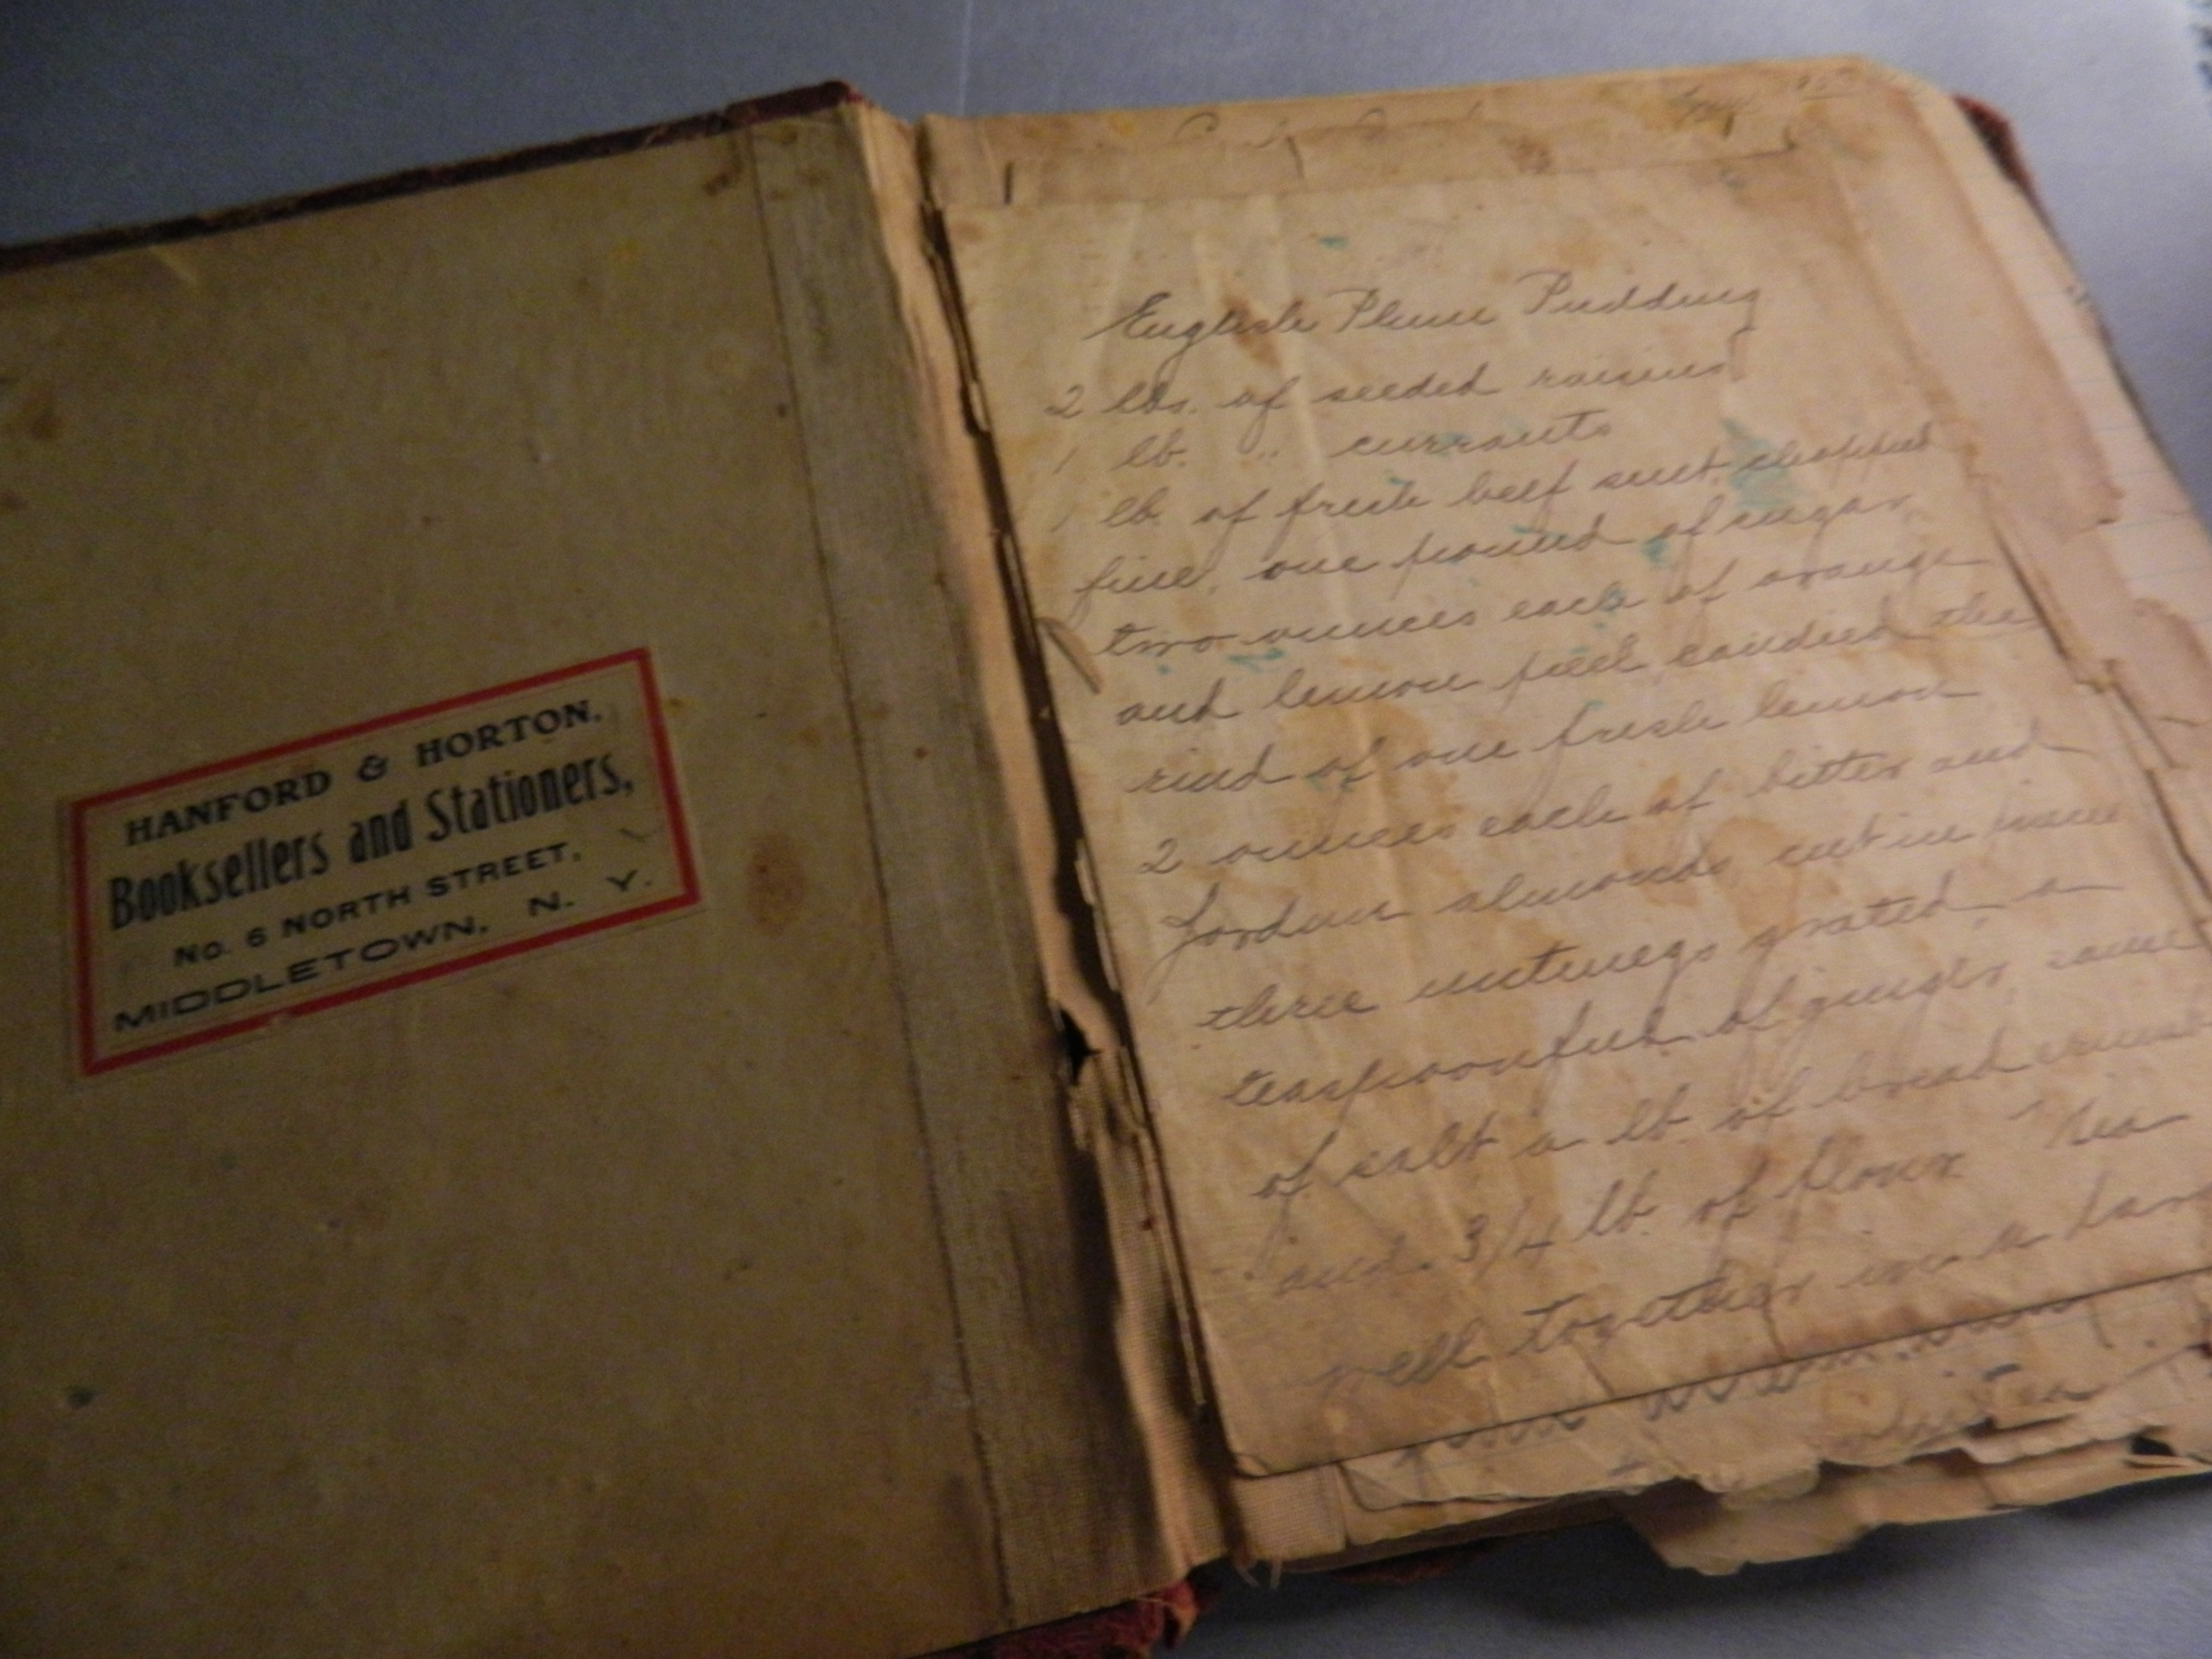 HANFORD & HORTON,
Booksellers and Stationers,
No. 6 NORTH STREET,
MIDDLETOWN, N. Y.
English Plum Pudding
2 lbs. of seeded raisins
1 lb. " currants
1 lb. of fresh beef suet, chopped
fine, one pound of sugar,
two ounces each of orange
and lemon peel, candied the
rind of one fresh lemon
2 ounces each of bitter and
Jordan almonds cut in
three nutmegs grated, a
teaspoonful of ginger, same
of salt a lb. of bread crumbs
and 3/4 lb. of flour
well together in a